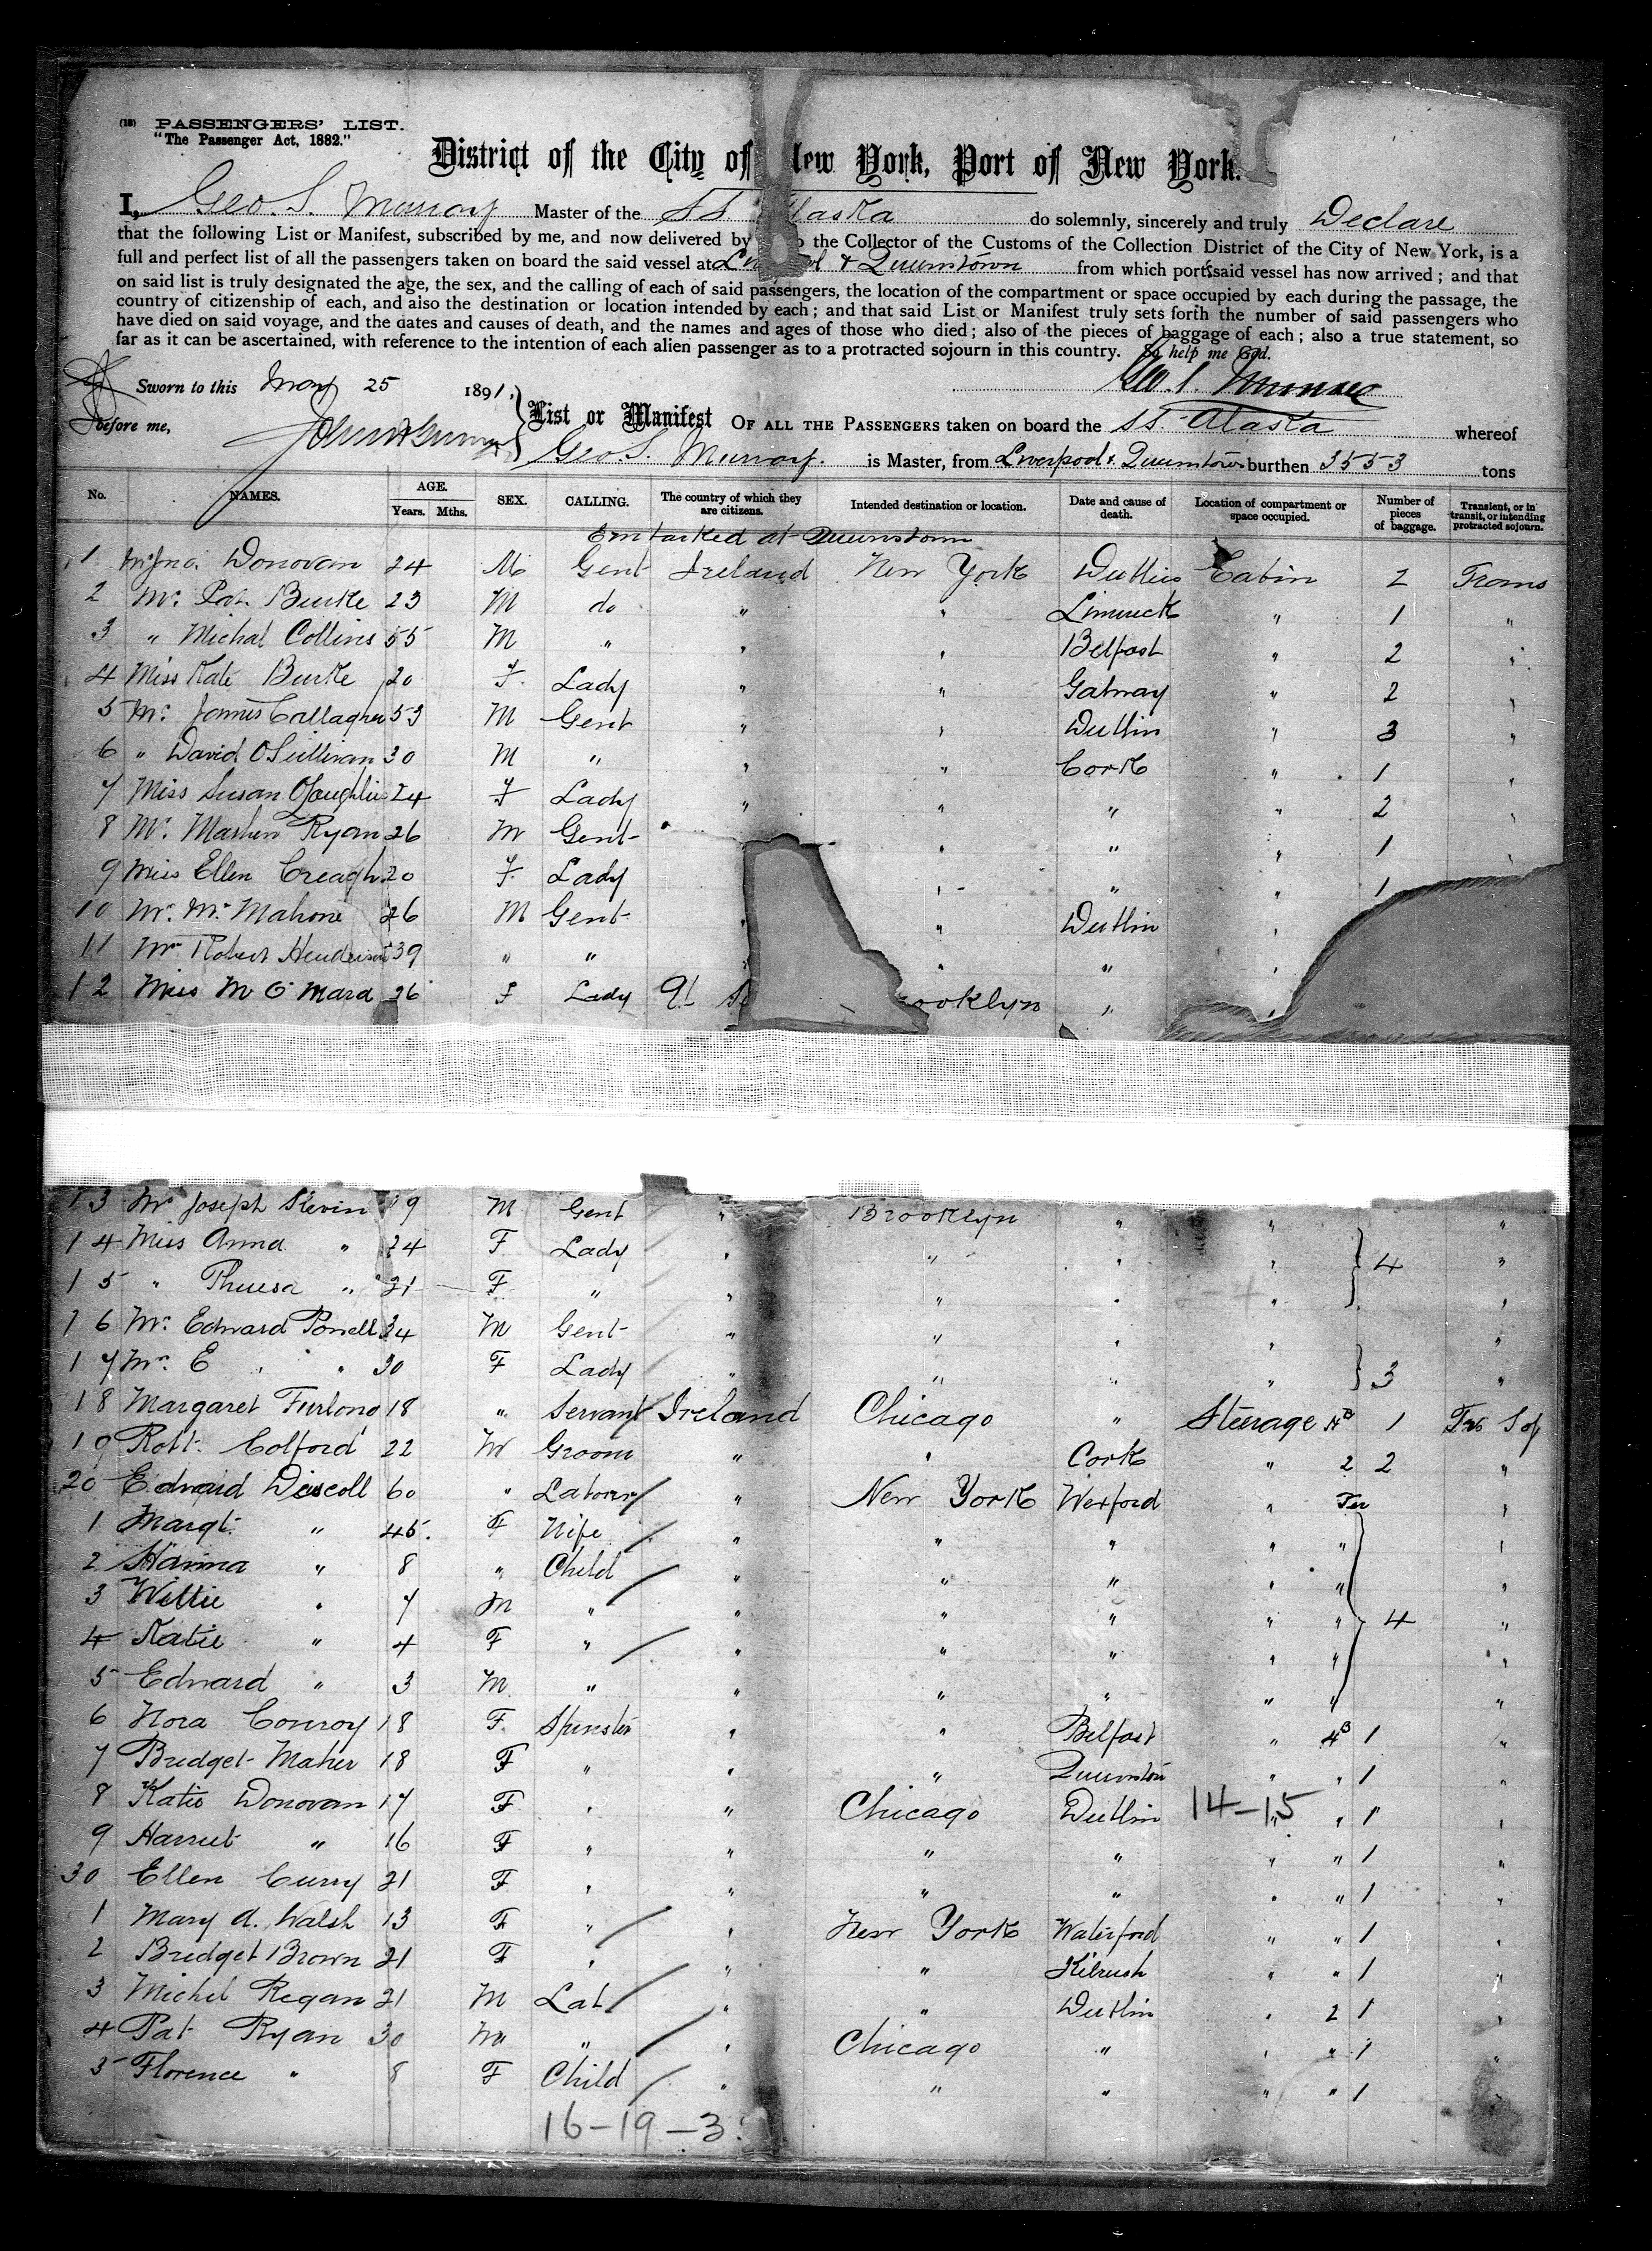 (18) PASSENGERS' LIST.
"The Passenger Act, 1882."
District of the City of New York, Port of New York.
I, Geo. S. Murray Master of the SS Alaska do solemnly, sincerely and truly Declare
that the following List or Manifest, subscribed by me, and now delivered by the Collector of the Customs of the Collection District of the City of New York, is a
full and perfect list of all the passengers taken on board the said vessel at & Queenstown from which ports said vessel has now arrived; and that
on said list is truly designated the age, the sex, and the calling of each of said passengers, the location of the compartment or space occupied by each during the passage, the
country of citizenship of each, and also the destination or location intended by each; and that said List or Manifest truly sets forth the number of said passengers who
have died on said voyage, and the dates and causes of death, and the names and ages of those who died; also of the pieces of baggage of each; also a true statement, so
far as it can be ascertained, with reference to the intention of each alien passenger as to a protracted sojourn in this country. So help me God.
Sworn to this May 25 1891. Geo. S. Murray
before me, List or Manifest OF ALL THE PASSENGERS taken on board the SS. Alaska whereof
Geo. S. Murray. is Master, from Liverpool & Queenstown burthen 3553 tons
No. NAMES. AGE. Years. Mths. SEX. CALLING. The country of which they are citizens. Intended destination or location. Date and cause of death. Location of compartment or space occupied. Number of pieces of baggage. Transient, or in transit, or intending protracted sojourn.
Embarked at Queenstown
1. Mr Jno. Donovan 24 M Gent Ireland New York Dublin Cabin 2 Trans
2 Mr. Pat. Burke 23 M do " " Limerick " 1 "
3 " Michal Collins 55 M " " " Belfast " 2 "
4 Miss Kate Burke 20 F. Lady " " Galway " 2 "
5 Mr. James Callagher 53 M Gent " " Dublin " 3 "
6 " David O Sullivan 30 M " " " Cork " 1 "
7 Miss Susan O Loughlin 24 F Lady " " " " 2 "
8 Mr. Mathew Ryan 26 M Gent " " " " 1 "
9 Miss Ellen Creagh 20 F. Lady " " " 1
10 Mr. Mc Mahone 26 M Gent " " Dublin "
11 Mr Robert Henderson 39 " " " " " "
12 Miss M O'Mara 26 F Lady ooklyn "
13 Mr Joseph Slevin 9 M Gent " Brooklyn " " "
14 Miss Anna " 24 F. Lady " " " " 4 "
15 " Theresa " 21 F. " " " " " "
16 Mr. Edward Powell 34 M Gent " " " " "
17 Mrs. E " " 30 F Lady " " " " 3 "
18 Margaret Furlong 18 " Servant Ireland Chicago " Steerage 4B 1
19 Robt. Colford 22 M Groom " " Cork " 2 2 "
20 Edward Driscoll 60 " Laborer " New York Wexford " "
1 Margt. " 45. F Wife " " " " " "
2 Hanna " 8 " Child " " " " " "
3 Willie " 7 M " " " " " " 4 "
4 Katie " 4 F " " " " " " "
5 Edward " 3 M. " " " " " " "
6 Nora Conroy 18 F. Spinster " " Belfast " 4B 1 "
7 Bridget Maher 18 F " " " Queenstown " " 1 "
8 Katie Donovan 17 F. " " Chicago Dublin 14-15 " " 1 "
9 Harriet " 16 F " " " " " " 1 "
30 Ellen Curry 21 F " " " " " " 1 "
1 Mary A. Walsh 13 F " " New York Waterford " " 1 "
2 Bridget Brown 21 F " " " Kilrush " " 1 "
3 Michel Regan 21 M Lab " " Dublin " 2 1 "
4 Pat Ryan 30 M " " Chicago " " " 1 "
5 Florence " 8 F Child " " " " " 1 "
16-19-3